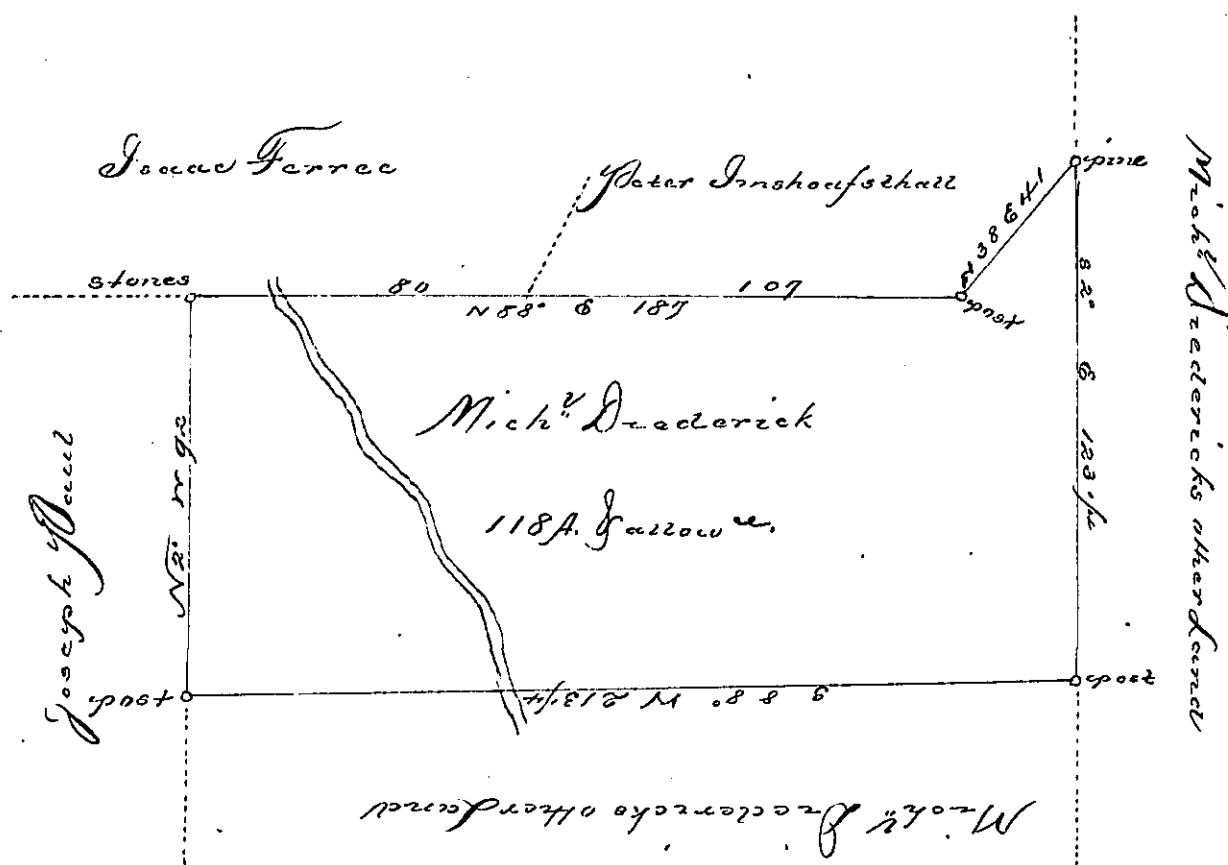 Isaac Ferree
Peter Imshoafsthall
pine
stones
80
107
N 88° E 187
post
N 38 E 41
S 2° E 123 1/2
Mich.ll Diedericks other Land
Mich.ll Diederick
118 A. & allow ce.
Joseph Paul
N 2° W 92
post
S 88° W 213 1/4
post
Mich.ll Diedericks other Land